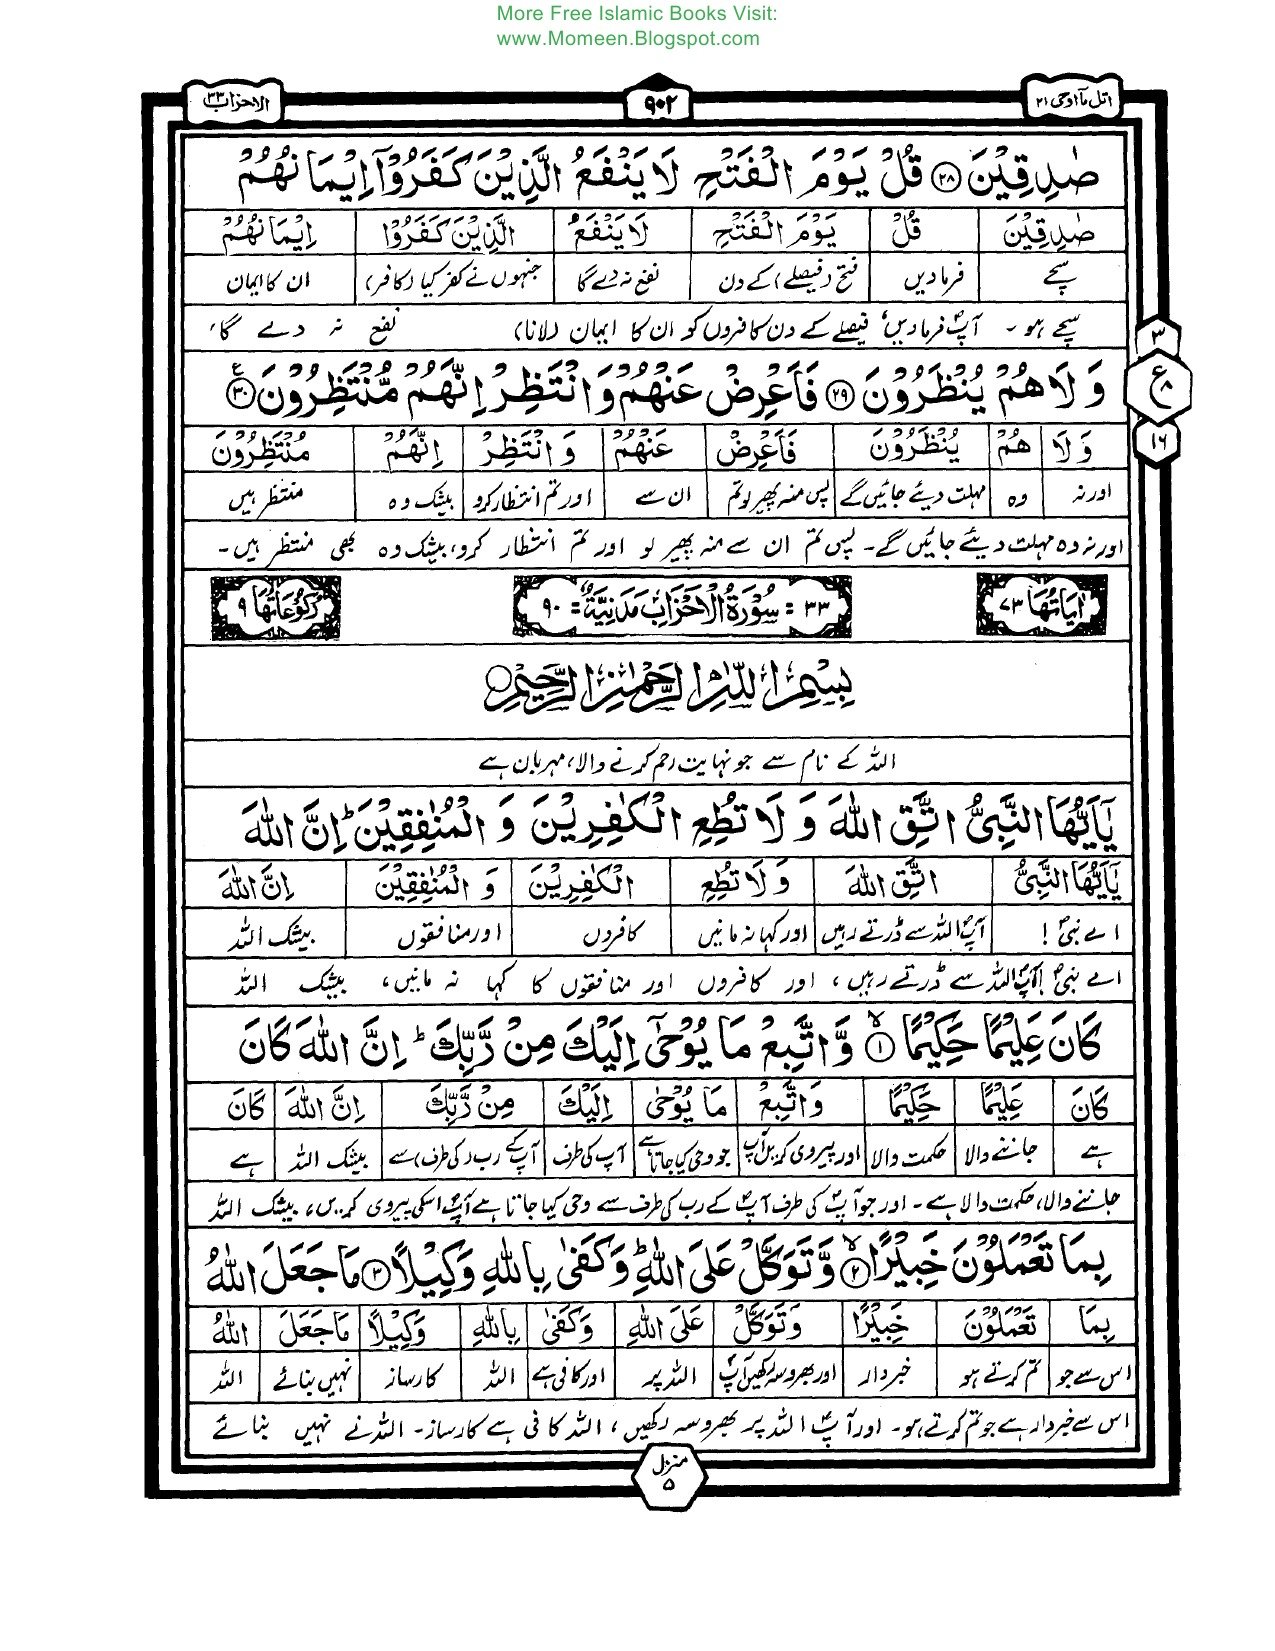 More Free Islamic Books Visit:
www.Momeen.Blogspot.com
اتل مآاوحی ۲۱
۹۰۲
الاحزاب ۳۳
صٰدِقِیْنَ ﴿۲۸﴾ قُلْ یَوْمَ الْفَتْحِ لَا یَنْفَعُ الَّذِیْنَ كَفَرُوْۤا اِیْمَانُهُمْ
صٰدِقِیْنَ | قُلْ | یَوْمَ الْفَتْحِ | لَا یَنْفَعُ | الَّذِیْنَ كَفَرُوْا | اِیْمَانُهُمْ
سچے | فرمادیں | فتح (فیصلے) کے دن | نفع نہ دے گا | جنہوں نے کفر کیا (کافر) | ان کا ایمان
سچے ہو۔ آپؐ فرمادیں، فیصلے کے دن کافروں کو ان کا ایمان (لانا) نفع نہ دے گا،
۳
وَ لَا هُمْ یُنْظَرُوْنَ ﴿۲۹﴾ فَاَعْرِضْ عَنْهُمْ وَ انْتَظِرْ اِنَّهُمْ مُّنْتَظِرُوْنَ ﴿۳۰﴾ ع
ع ۸
وَ لَا | هُمْ | یُنْظَرُوْنَ | فَاَعْرِضْ | عَنْهُمْ | وَ انْتَظِرْ | اِنَّهُمْ | مُنْتَظِرُوْنَ
۱۶
اور نہ | وہ | مہلت دیئے جائیں گے | پس منہ پھیر لو تم | ان سے | اور تم انتظار کرو | بیشک وہ | منتظر ہیں
اور نہ وہ مہلت دیئے جائیں گے۔ پس تم ان سے منہ پھیر لو اور تم انتظار کرو، بیشک وہ بھی منتظر ہیں۔
اٰیَاتُهَا ۷۳
۳۳ = سُوْرَةُ الْاَحْزَابِ مَدَنِیَّةٌ = ۹۰
رُكُوْعَاتُهَا ۹
بِسْمِ اللّٰهِ الرَّحْمٰنِ الرَّحِیْمِ
اللہ کے نام سے جو نہایت رحم کرنے والا، مہربان ہے
یٰۤاَیُّهَا النَّبِیُّ اتَّقِ اللّٰهَ وَ لَا تُطِعِ الْكٰفِرِیْنَ وَ الْمُنٰفِقِیْنَ ؕ اِنَّ اللّٰهَ
یٰۤاَیُّهَا النَّبِیُّ | اتَّقِ اللّٰهَ | وَ لَا تُطِعِ | الْكٰفِرِیْنَ | وَ الْمُنٰفِقِیْنَ | اِنَّ اللّٰهَ
اے نبیؐ! | آپؐ اللہ سے ڈرتے رہیں | اور کہا نہ مانیں | کافروں | اور منافقوں | بیشک اللہ
اے نبیؐ! آپؐ اللہ سے ڈرتے رہیں، اور کافروں اور منافقوں کا کہا نہ مانیں، بیشک اللہ
كَانَ عَلِیْمًا حَكِیْمًا ﴿۱﴾ ۙ وَّ اتَّبِعْ مَا یُوْحٰۤی اِلَیْكَ مِنْ رَّبِّكَ ؕ اِنَّ اللّٰهَ كَانَ
كَانَ | عَلِیْمًا | حَكِیْمًا | وَ اتَّبِعْ | مَا یُوْحٰۤی | اِلَیْكَ | مِنْ رَّبِّكَ | اِنَّ اللّٰهَ | كَانَ
ہے | جاننے والا | حکمت والا | اور پیروی کریں آپؐ | جو وحی کیا جاتا ہے | آپؐ کی طرف | آپؐ کے رب (کی طرف) سے | بیشک اللہ | ہے
جاننے والا، حکمت والا ہے۔ اور جو آپؐ کی طرف آپؐ کے رب کی طرف سے وحی کیا جاتا ہے آپؐ اسکی پیروی کریں، بیشک اللہ
بِمَا تَعْمَلُوْنَ خَبِیْرًا ﴿۲﴾ ۙ وَّ تَوَكَّلْ عَلَی اللّٰهِ ؕ وَ كَفٰی بِاللّٰهِ وَكِیْلًا ﴿۳﴾ مَا جَعَلَ اللّٰهُ
بِمَا | تَعْمَلُوْنَ | خَبِیْرًا | وَ تَوَكَّلْ | عَلَی اللّٰهِ | وَ كَفٰی | بِاللّٰهِ | وَكِیْلًا | مَا جَعَلَ | اللّٰهُ
اس سے جو | تم کرتے ہو | خبردار | اور بھروسہ رکھیں آپؐ | اللہ پر | اور کافی ہے | اللہ | کارساز | نہیں بنائے | اللہ
اس سے خبردار ہے جو تم کرتے ہو۔ اور آپؐ اللہ پر بھروسہ رکھیں، اللہ کافی ہے کارساز۔ اللہ نے نہیں بنائے
منزل ۵